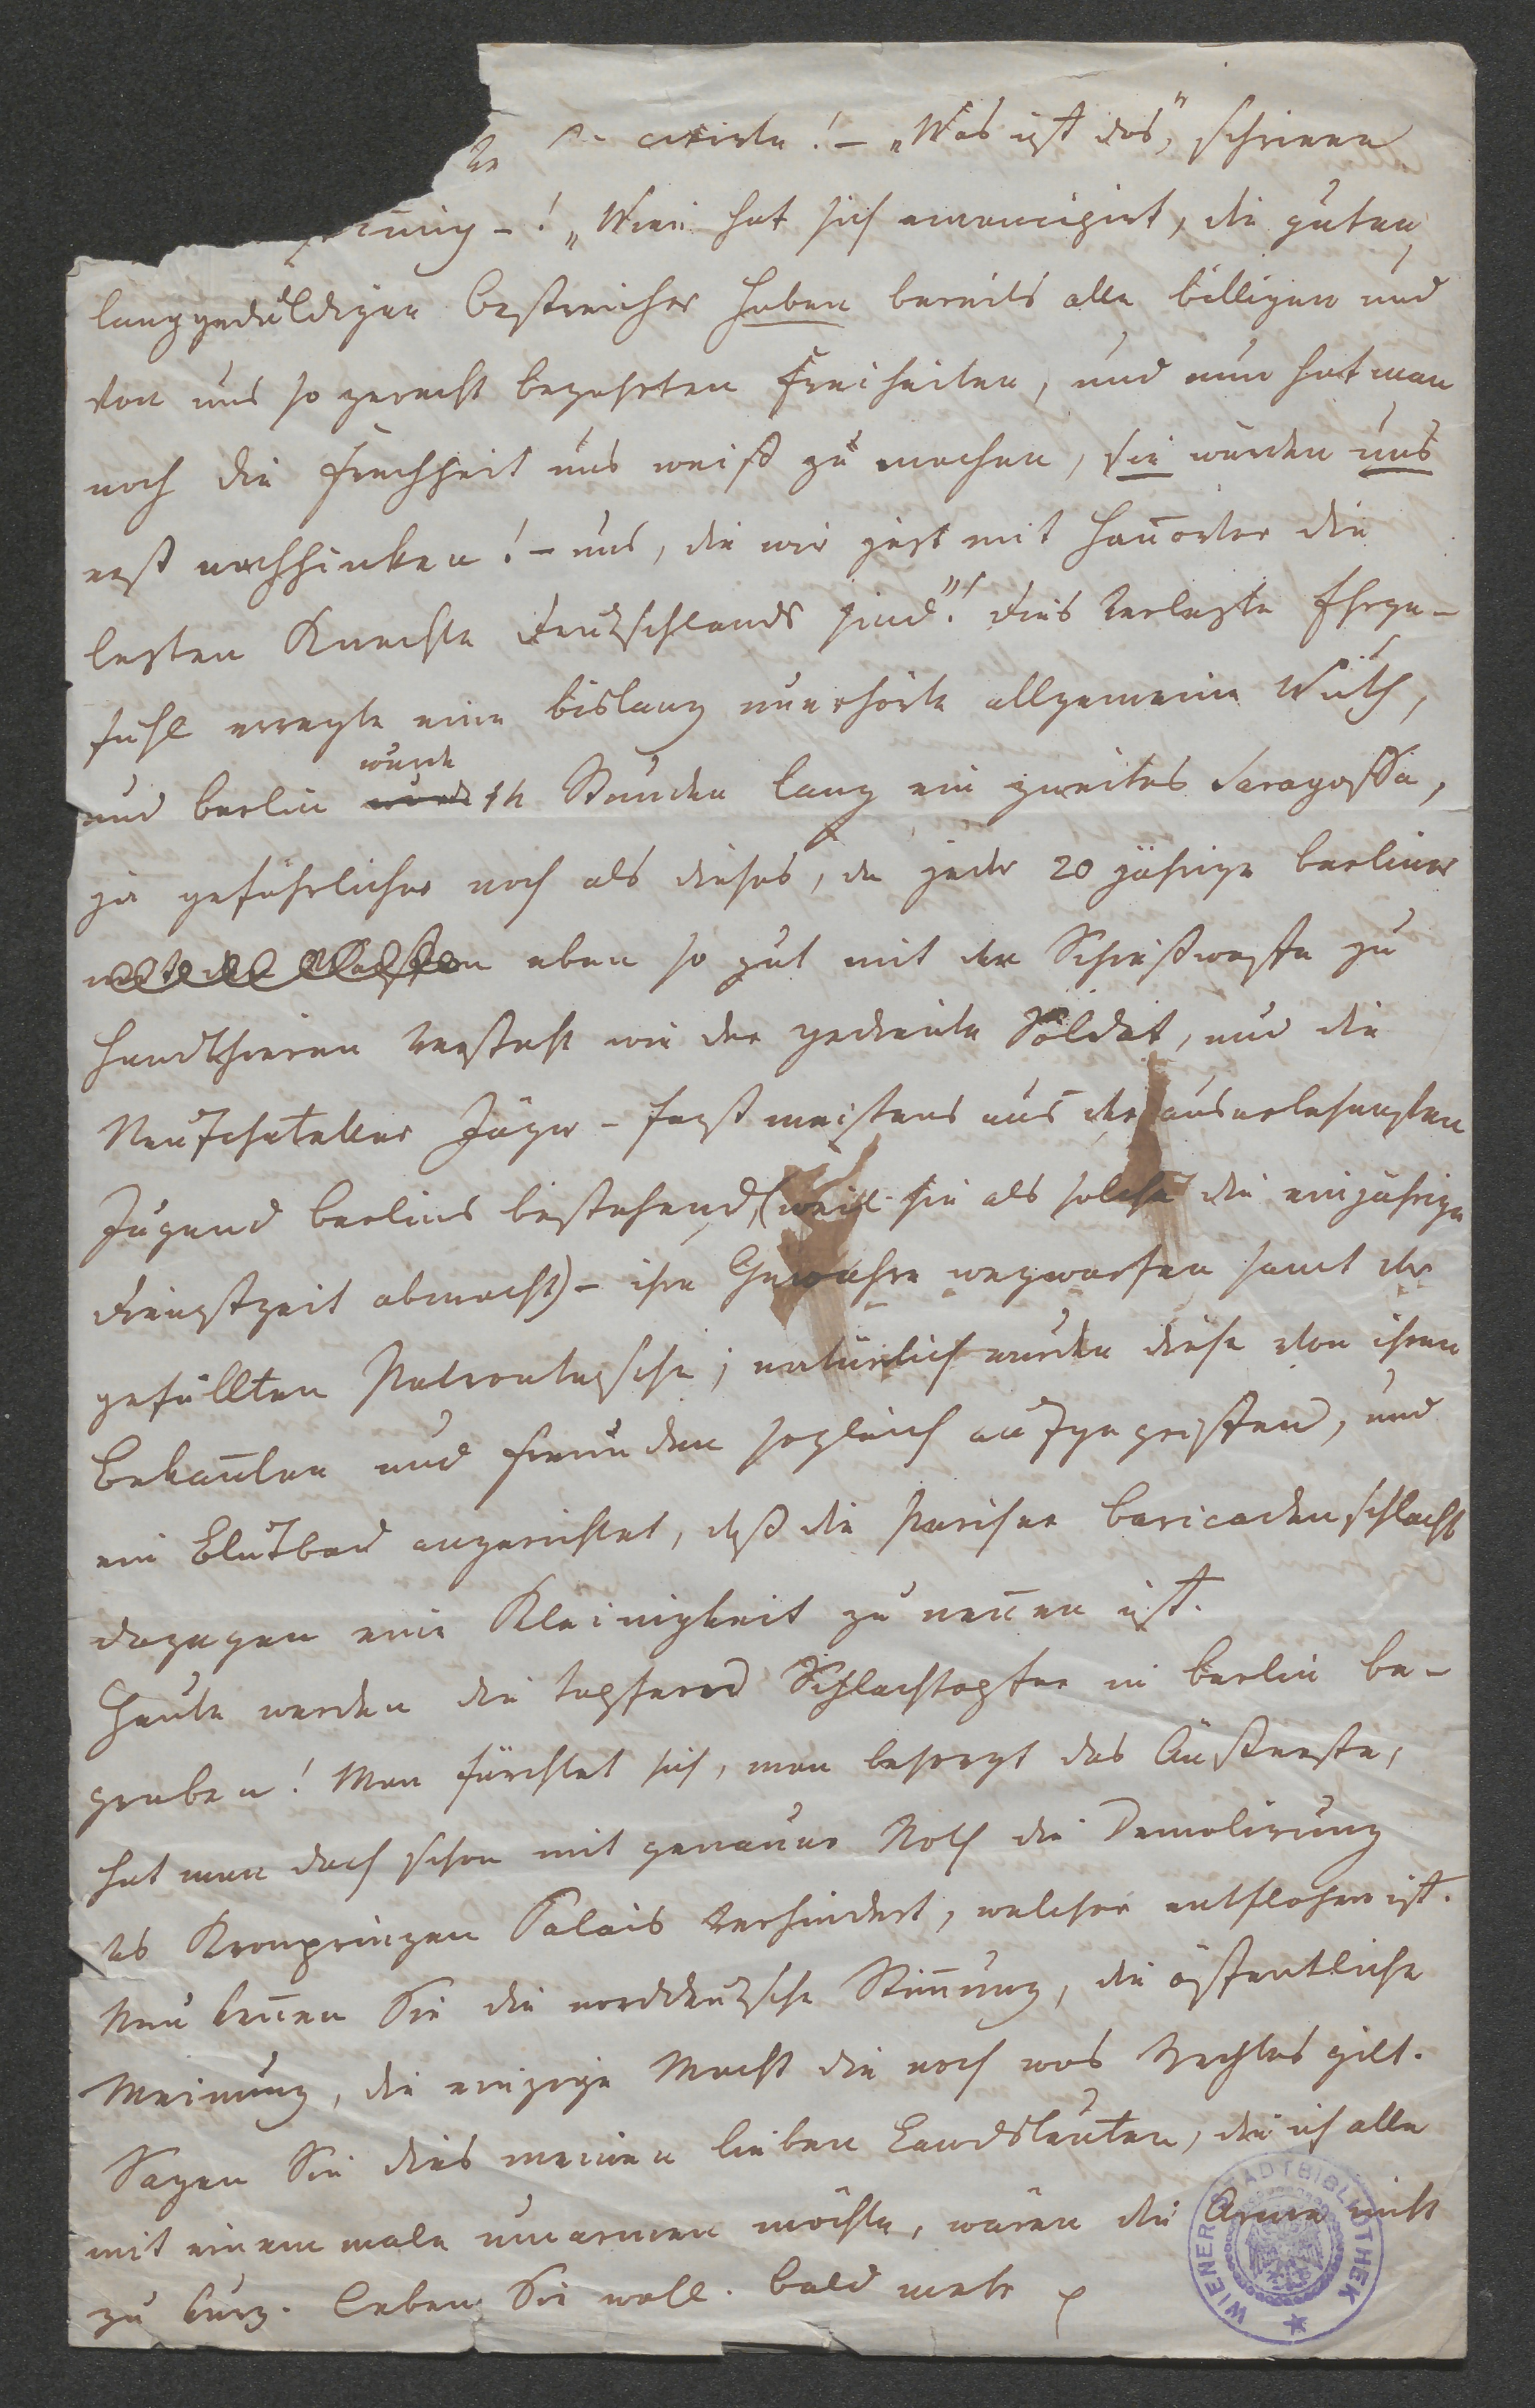 citirte! – „Was ist das", schrieen
– ! „Wien hat sich emancipirt, die guten,
langgeduldigen Östreicher haben bereits alle billigen und
von uns so gerecht begehrten Freiheiten, und nun hat man
noch die Frechheit uns weiß zu machen, sie würden uns
erst nachhinken! – uns, die wir jezt mit Hañover die
lezten Knechte Deutschlands sind"! Dies verlezte Ehrge-
fühl erregte eine bislang unerhörte allgemeine Wuth,
wurde
und Berlin 14 Stunden lang ein zweites Saragossa,
ja gefährlicher noch als dieses, da jeder 20 jährige Berliner
eben so gut mit der Schießwaffe zu
handthieren versteht wie der gediente Soldat, und die
Neufchateller Jäger – fast meistens aus der auserlesensten
Jugend Berlins bestehend, (weil sie als solche die einjährige
Dienstzeit abmacht) – ihre Gewehre wegwarfen samt der
gefüllten Patrontasche; natürlich wurden diese von ihren
Bekañten und Freunden sogleich aufgegriffen, und
ein Blutbad angerichtet, daß die Pariser Baricadenschlacht
dagegen eine Kleinigkeit zu neñen ist.
Heute werden die tapferen Schlachtopfer in Berlin be-
graben! Man fürchtet sich, man besorgt das Äußerste,
hat man doch schon mit genauer Noth die Demolirung
des Kronprinzen Palais verhindert, welcher entflohen ist.
Nun keñen Sie die norddeutsche Stiḿung, die öffentliche
Meinung, die einzige Macht die noch was Rechtes gilt.
Sagen Sie dies meinen lieben Landsleuten, die ich alle
mit einem male umarmen möchte, wären die Arme nicht
zu kurz. Leben Sie wohl. Bald mehr
WIENER STADTBIBLIOTHEK